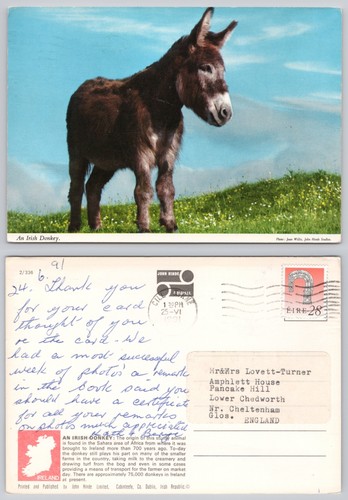 An Irish Donkey.
Photo: Joan Willis, John Hinde Studios.
2/238
24. 6. 91
Thank you
for your card
thought of you
re the card - We
had a most successful
week of photo's & remarks
in the book said you
should have a certificate
for all your remarks
on photos much appreciated
1 PM
25-VI
ÉIRE 28
Mr&Mrs Lovett-Turner
Amphlett House
Pancake Hill
Lower Chedworth
Nr. Cheltenham
Glos.
ENGLAND
AN IRISH DONKEY: The origin of this sturdy animal
is found in the Sahara area of Africa from where it was
brought to Ireland more than 700 years ago. To-day
the donkey still plays his part on many of the smaller
farms in the country, taking milk to the creamery and
drawing turf from the bog and even in some cases
providing a means of transport for the farmer on market
day. There are approximately 75,000 donkeys in Ireland
at present.
IRELAND
Printed and Published by John Hinde Limited, Cabinteely, Co. Dublin, Irish Republic.